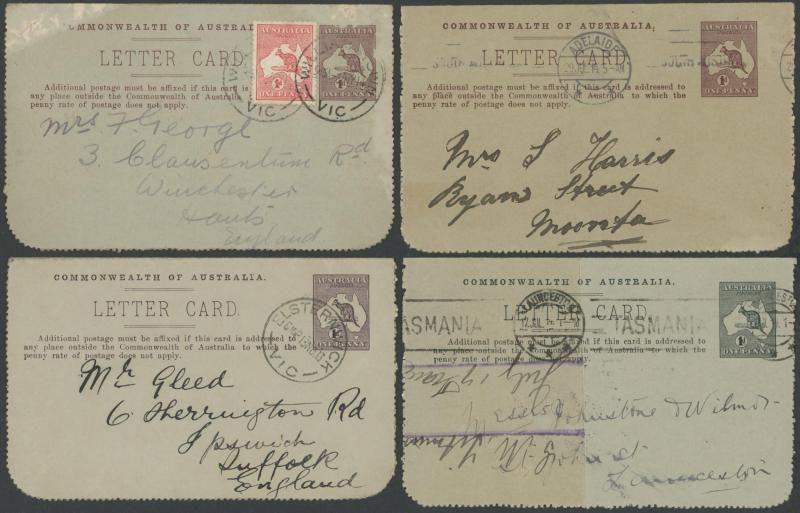 COMMONWEALTH OF AUSTRALIA.
LETTER CARD.
AUSTRALIA
1d
ONE PENNY
AUSTRALIA
1d
ONE PENNY
VIC
VIC
Additional postage must be affixed if this card is
any place outside the Commonwealth of Australia
penny rate of postage does not apply.
Mrs F. George
3. Clausentum Rd
Winchester
Hants
England
COMMONWEALTH OF AUSTRALIA.
LETTER CARD.
AUSTRALIA
1d
ONE PENNY
ADELAIDE
Additional postage must be affixed if this card is addressed to
any place outside the Commonwealth of Australia to which the
penny rate of postage does not apply.
Mrs S Harris
Ryans Street
Moonta
COMMONWEALTH OF AUSTRALIA.
LETTER CARD.
AUSTRALIA
1d
ONE PENNY
ELSTERNWICK
VIC
Additional postage must be affixed if this card is addressed to
any place outside the Commonwealth of Australia to which the
penny rate of postage does not apply.
Mr Gleed
6 Sherrington Rd
Ipswich
Suffolk
England
COMMONWEALTH OF AUSTRALIA.
LETTER CARD.
AUSTRALIA
1d
ONE PENNY
LAUNCESTON
ASMANIA
TASMANIA
Additional postage must be affixed if this card is addressed to
any place outside the Commonwealth of Australia to which the
penny rate of postage does not apply.
July 17
Johnstone & Wilmot
Launceston